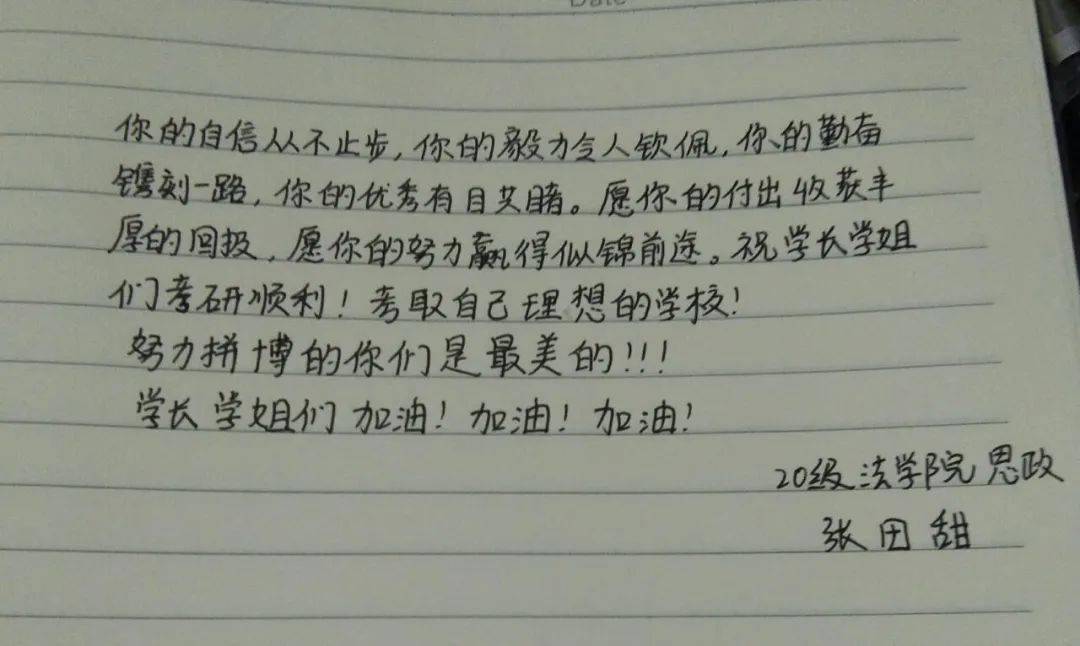 Date
你的自信从不止步，你的毅力令人钦佩，你的勤奋
镌刻一路，你的优秀有目共睹。愿你的付出收获丰
厚的回报，愿你的努力赢得似锦前途。祝学长学姐
们考研顺利！考取自己理想的学校！
努力拼博的你们是最美的！！！
学长学姐们加油！加油！加油！
20级法学院思政
张田甜